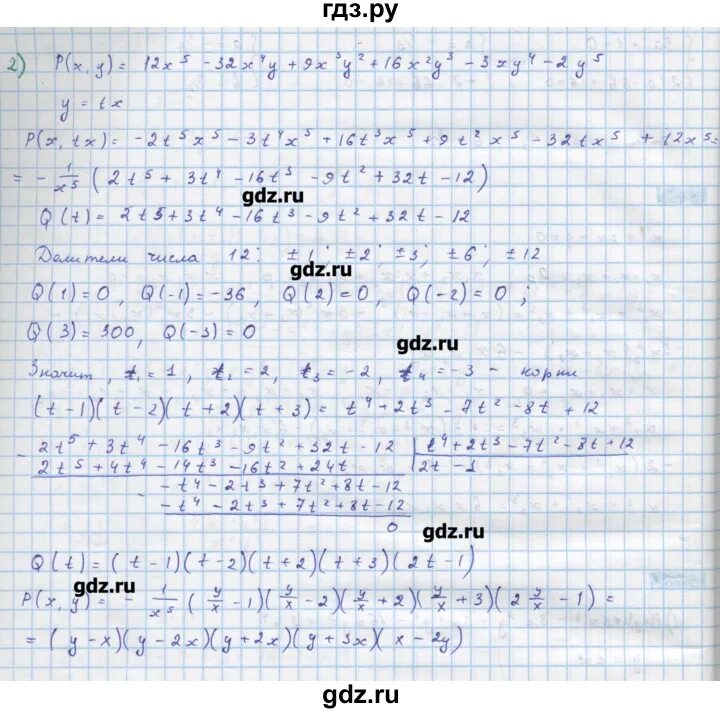 гдз.ру
2) P(x, y) = 12x⁵ - 32x⁴y + 9x³y² + 16x²y³ - 3xy⁴ - 2y⁵
y = tx
P(x, tx) = -2t⁵x⁵ - 3t⁴x⁵ + 16t³x⁵ + 9t²x⁵ - 32tx⁵ + 12x⁵ =
= - 1/x⁵ (2t⁵ + 3t⁴ - 16t³ - 9t² + 32t - 12)
gdz.ru
Q(t) = 2t5 + 3t⁴ - 16t³ - 9t² + 32t - 12
Делители числа 12: ±1; ±2; ±3; ±6; ±12
gdz.ru
Q(1) = 0, Q(-1) = -36, Q(2) = 0, Q(-2) = 0;
Q(3) = 300, Q(-3) = 0
gdz.ru
Значит, t₁ = 1, t₂ = 2, t₃ = -2, t₄ = -3 - корни
(t-1)(t-2)(t+2)(t+3) = t⁴ + 2t³ - 7t² - 8t + 12
- 2t⁵ + 3t⁴ - 16t³ - 9t² + 32t - 12 | t⁴ + 2t³ - 7t² - 8t + 12
2t⁵ + 4t⁴ - 14t³ - 16t² + 24t | 2t - 1
- -t⁴ - 2t³ + 7t² + 8t - 12
-t⁴ - 2t³ + 7t² + 8t - 12
0
gdz.ru
Q(t) = (t-1)(t-2)(t+2)(t+3)(2t-1)
gdz.ru
P(x, y) = - 1/x⁵ (y/x - 1)(y/x - 2)(y/x + 2)(y/x + 3)(2 y/x - 1) =
= (y-x)(y-2x)(y+2x)(y+3x)(x-2y)
gdz.ru